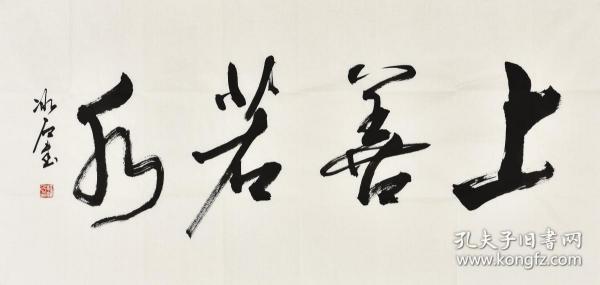 上善若水
冰石书
孔夫子旧书网
www.kongfz.com